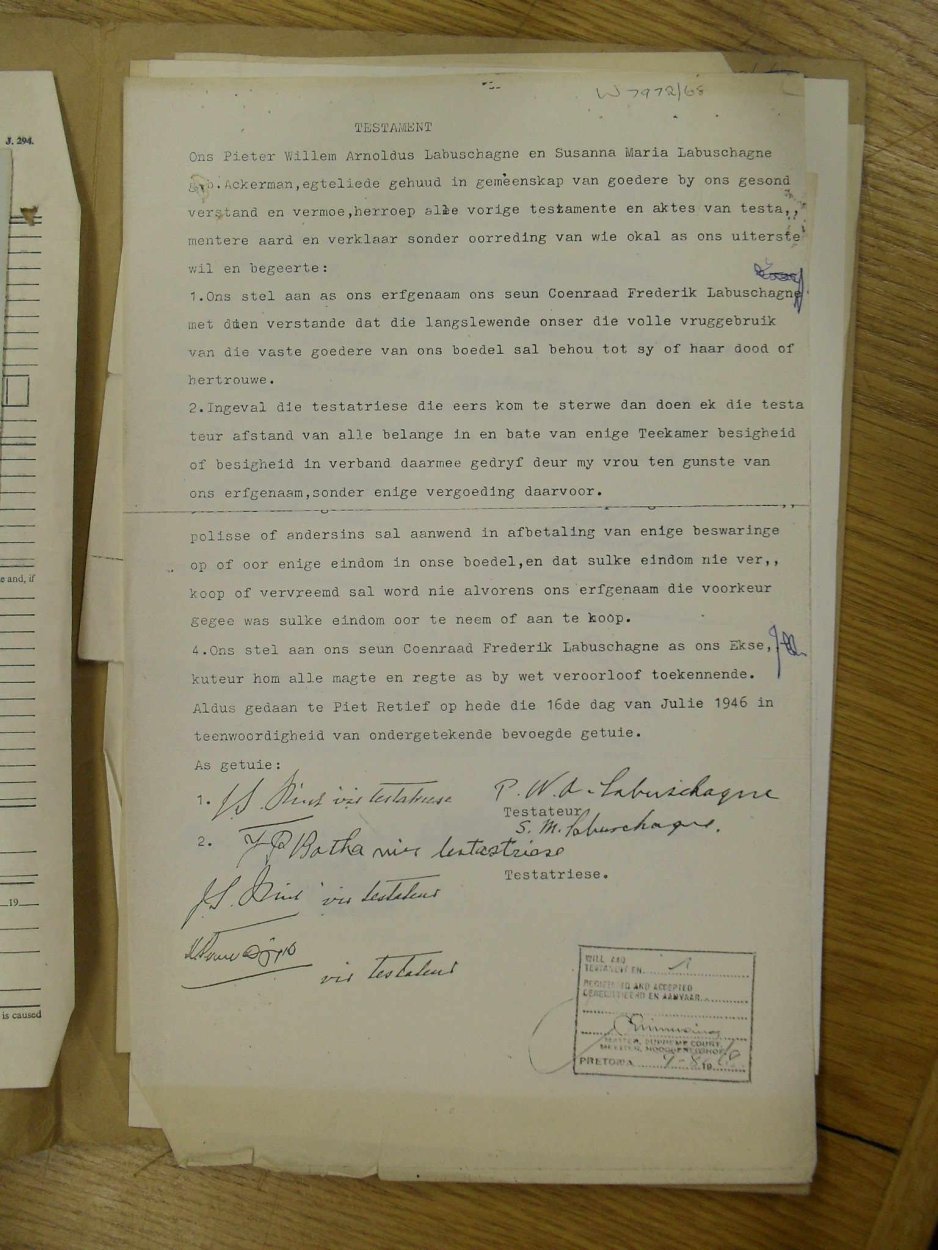 J. 294.
e and, if
19
is caused
W 7972/68
TESTAMENT
Ons Pieter Willem Arnoldus Labuschagne en Susanna Maria Labuschagne
geb.Ackerman,egteliede gehuud in gemeenskap van goedere by ons gesond
verstand en vermoe,herroep alle vorige testamente en aktes van testa,,
mentere aard en verklaar sonder oorreding van wie okal as ons uiterste
wil en begeerte:
1.Ons stel aan as ons erfgenaam ons seun Coenraad Frederik Labuschagne
met dien verstande dat die langslewende onser die volle vruggebruik
van die vaste goedere van ons boedel sal behou tot sy of haar dood of
hertrouwe.
2.Ingeval die testatriese die eers kom te sterwe dan doen ek die testa
teur afstand van alle belange in en bate van enige Teekamer besigheid
of besigheid in verband daarmee gedryf deur my vrou ten gunste van
ons erfgenaam,sonder enige vergoeding daarvoor.
polisse of andersins sal aanwend in afbetaling van enige beswaringe
op of oor enige eindom in onse boedel,en dat sulke eindom nie ver,,
koop of vervreemd sal word nie alvorens ons erfgenaam die voorkeur
gegee was sulke eindom oor te neem of aan te koop.
4.Ons stel aan ons seun Coenraad Frederik Labuschagne as ons Ekse,
kuteur hom alle magte en regte as by wet veroorloof toekennende.
Aldus gedaan te Piet Retief op hede die 16de dag van Julie 1946 in
teenwoordigheid van ondergetekende bevoegde getuie.
As getuie:
1. J.S. vir testatriese
P. W. A. Labuschagne
Testateur
S. M. Labuschagne.
2. Botha vir testatriese
Testatriese.
J.S. vir testateur
vir testateur
WILL AND
TESTAMENT EN
REGISTERED AND ACCEPTED
GEREGISTREERD EN AANVAAR
MASTER, SUPREME COURT,
MEESTER, HOOGGEREGSHOF,
PRETORIA 19